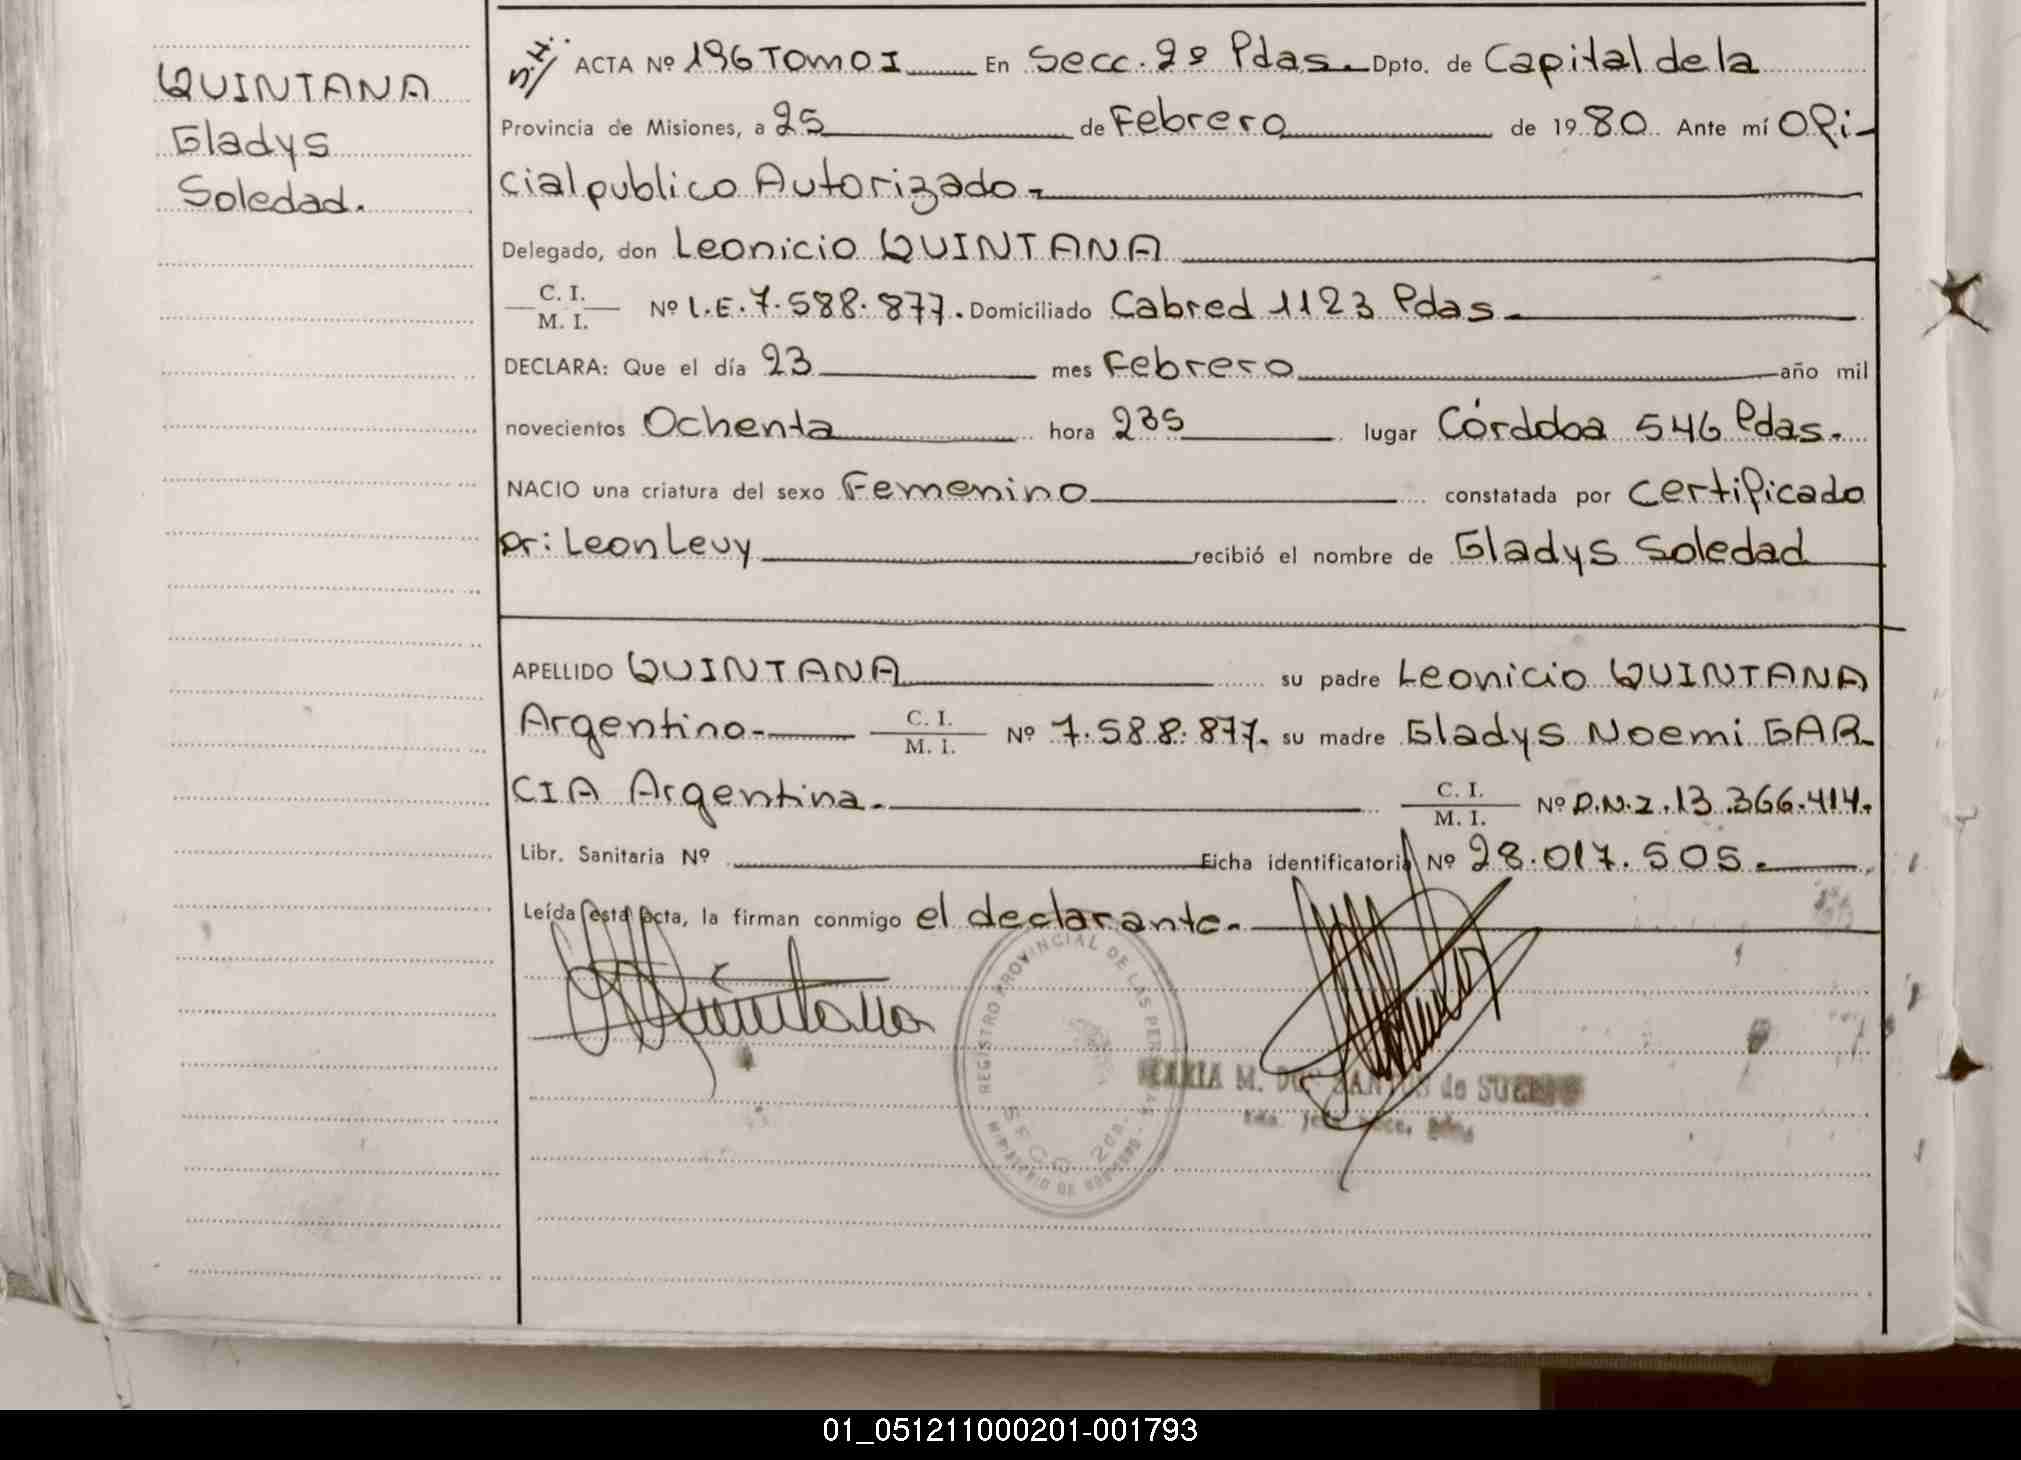 QUINTANA
Gladys
Soledad.
S.H. ACTA Nº 196 TOMO I En Secc. 2º Pdas. Dpto. de Capital de la
Provincia de Misiones, a 25 de Febrero de 1980. Ante mí Ofi-
cial publico Autorizado.-
Delegado, don Leonicio QUINTANA
C. I.
M. I. Nº L.E. 7.588.877. Domiciliado Cabred 1123 Pdas.
DECLARA: Que el día 23 mes Febrero año mil
novecientos Ochenta hora 235 lugar Córdoba 546 Pdas.
NACIO una criatura del sexo Femenino constatada por certificado
Dr: Leon Levy recibió el nombre de Gladys Soledad
APELLIDO QUINTANA su padre Leonicio QUINTANA
Argentino- C. I.
M. I. Nº 7.588.877. su madre Gladys Noemi GAR-
CIA Argentina.- C. I.
M. I. Nº D.N.I. 13.366.414.
Libr. Sanitaria Nº Ficha identificatoria Nº 28.017.505.-
Leída esta acta, la firman conmigo el declarante.-
Quintana
REGISTRO PROVINCIAL DE LAS PERSONAS
SECC. 2da.
MINISTERIO DE GOBIERNO
MARIA M. DOS SANTOS de
01_051211000201-001793